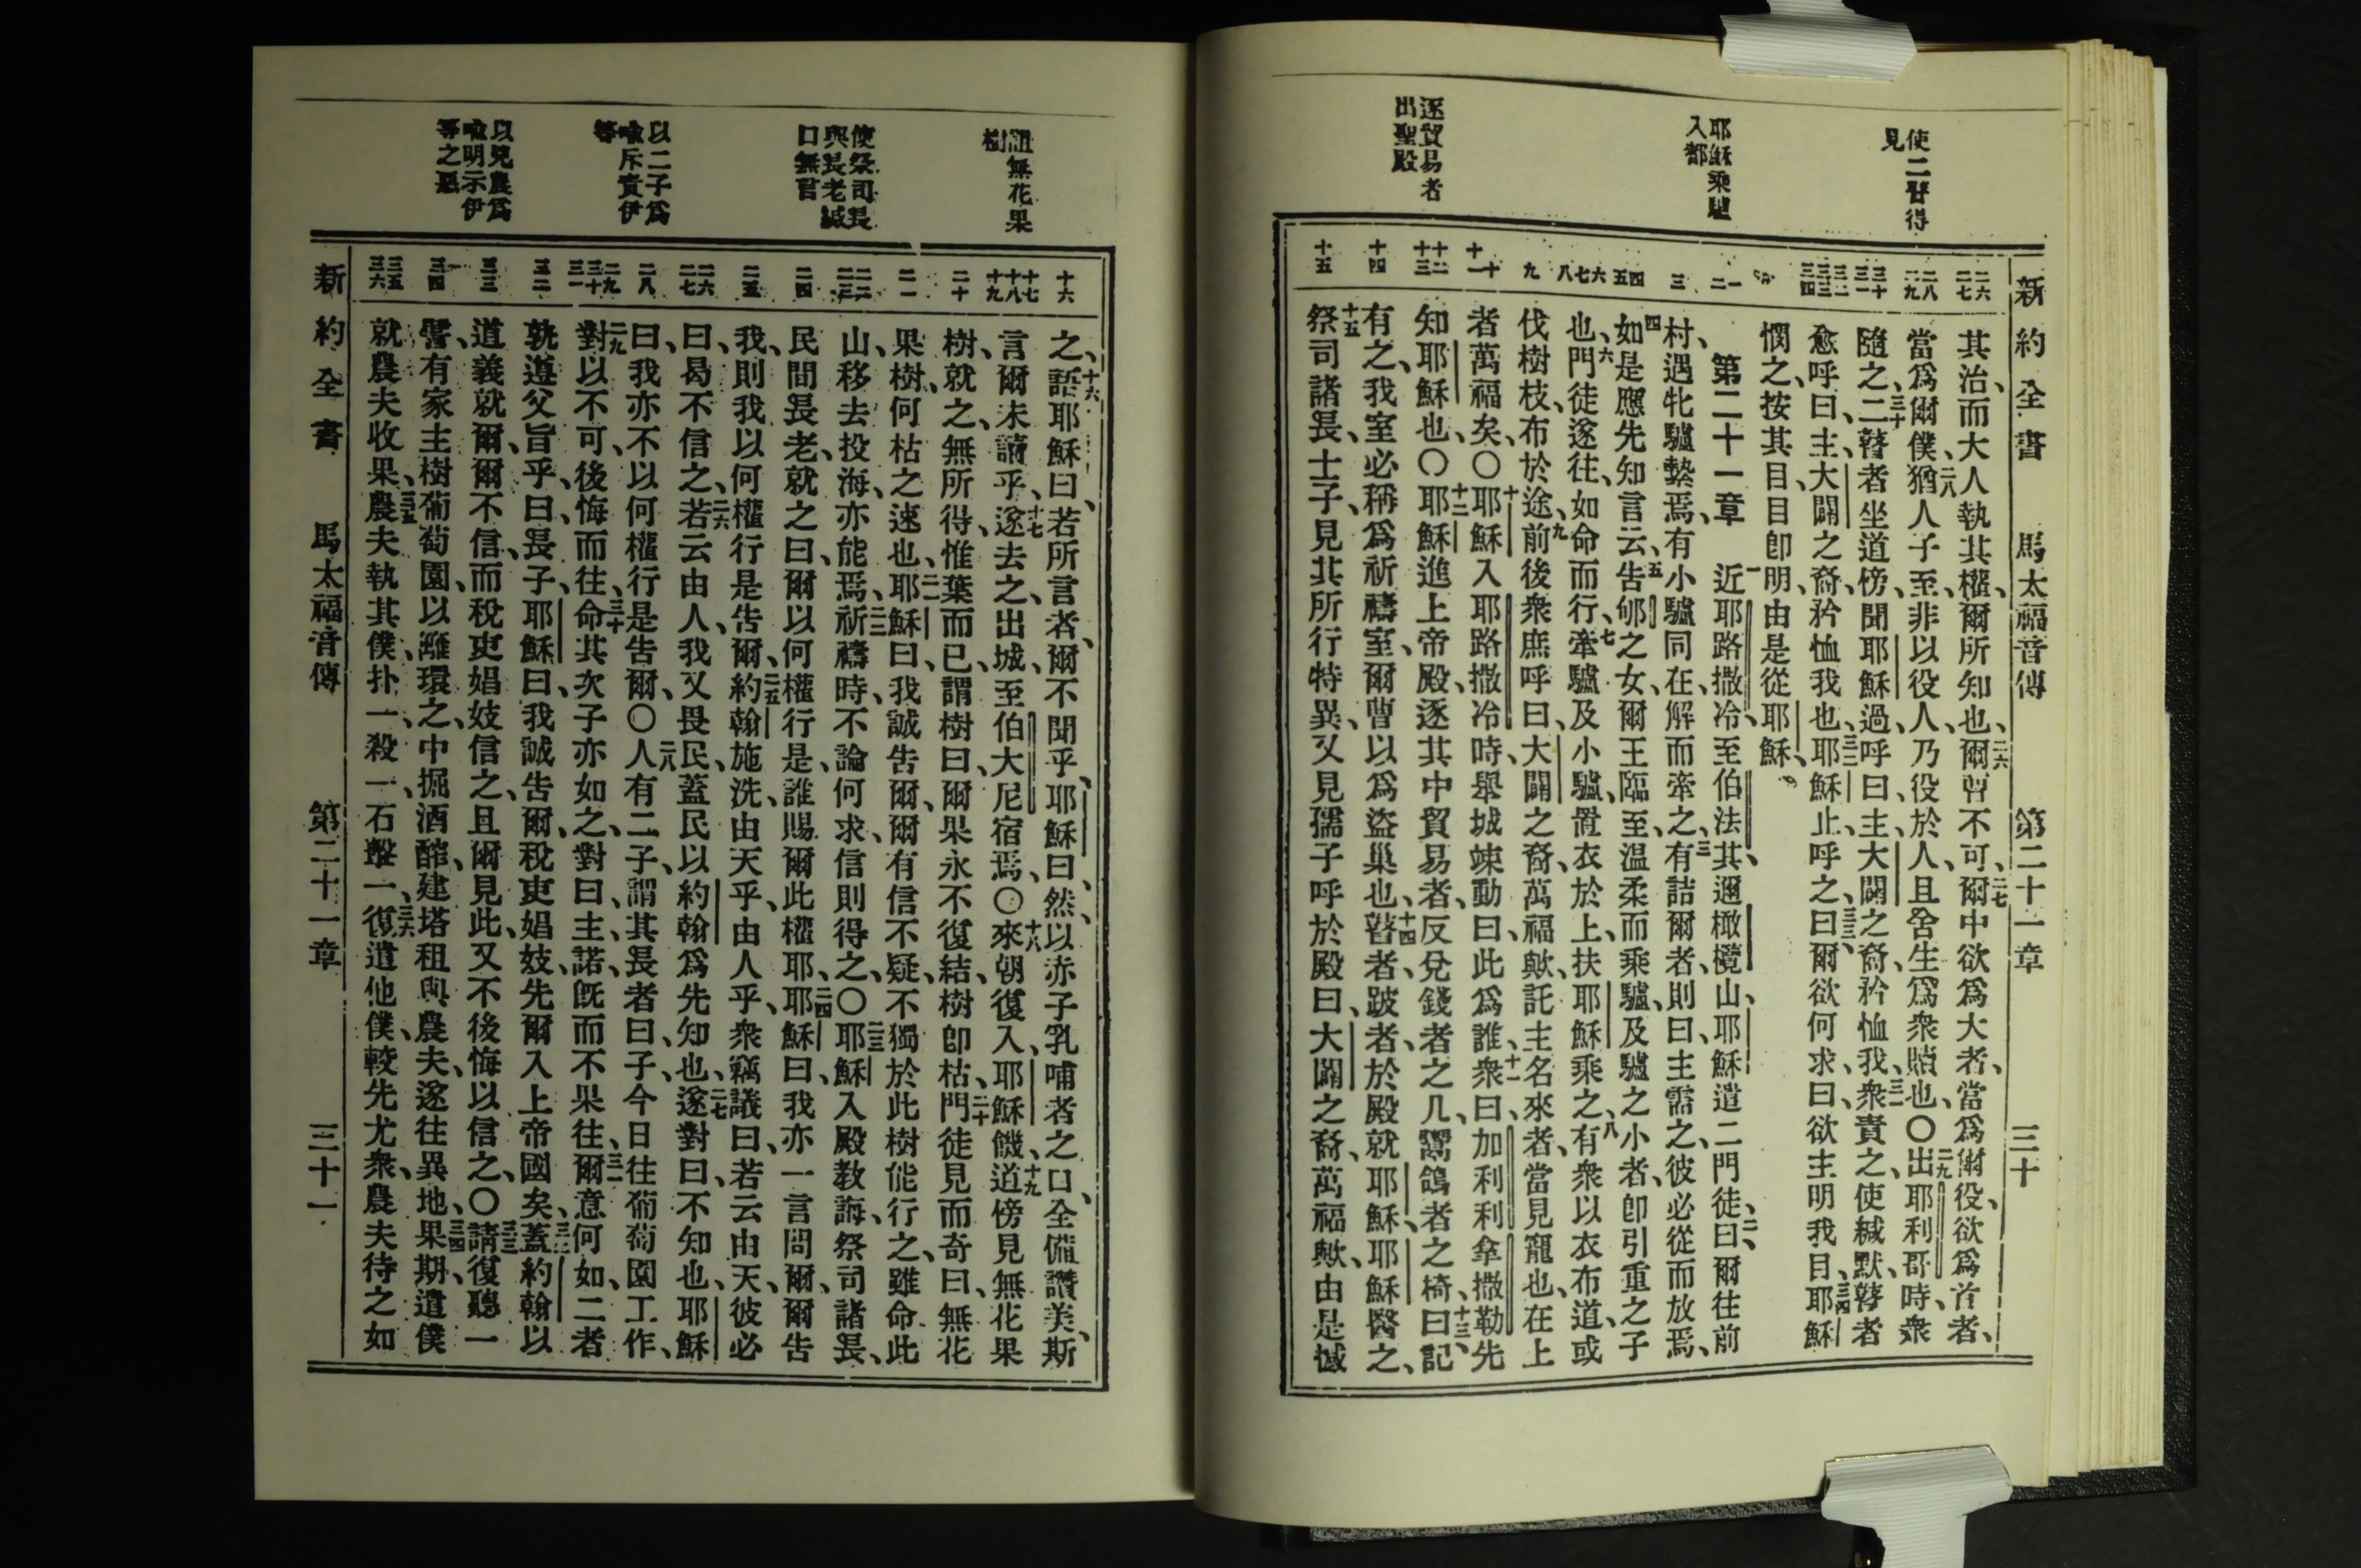 使二瞽得
見
耶穌乘驢
入都
逐貿易者
出聖殿
新約全書 馬太福音傳 第二十一章 三十
二六
二七
二八
二九
三十
三一
三二
三三
三四
一
二
三
四
五
六
七
八
九
十
十一
十二
十三
十四
十五
其治、而大人執其權、爾所知也、二六爾曹不可、二七爾中欲爲大者、當爲爾役、欲爲首者、
當爲爾僕、二八猶人子至、非以役人、乃役於人、且舍生爲衆贖也、〇二九出耶利哥時、衆
隨之、三十二瞽者坐道傍、聞耶穌過、呼曰、主、大闢之裔、矜恤我、三一衆責之、使緘默、瞽者
愈呼曰、主、大闢之裔、矜恤我也、三二耶穌止、呼之、曰、三三爾欲何求、曰、欲主明我目、三四耶穌
憫之、按其目、目卽明、由是從耶穌、
第二十一章 一近耶路撒冷、至伯法其、邇橄欖山、耶穌遣二門徒、二曰、爾往前
村、遇牝驢縶焉、有小驢同在、解而牽之、三有詰爾者、則曰、主需之、彼必從而放焉、
四如是應先知言云、五告郇之女、爾王臨至、溫柔而乘驢、及驢之小者、卽引重之子
也、六門徒遂往、如命而行、七牽驢及小驢、置衣於上、扶耶穌乘之、八有衆以衣布道、或
伐樹枝、布於途、九前後衆庶呼曰、大闢之裔、萬福歟、託主名來者、當見寵也、在上
者萬福矣、〇十耶穌入耶路撒冷時、舉城竦動、曰、此爲誰、十一衆曰、加利利拿撒勒先
知耶穌也、〇十二耶穌進上帝殿、逐其中貿易者、反兌錢者之几、鬻鴿者之椅、十三曰、記
有之、我室必稱爲祈禱室、爾曹以爲盜巢也、十四瞽者、跛者、於殿就耶穌、耶穌醫之、
十五祭司諸長、士子、見其所行特異、又見孺子呼於殿曰、大闢之裔、萬福歟、由是憾
詛無花果
樹
使祭司長
與長老緘
口無言
以二子爲
喩斥責伊
等
以兇農爲
喩明示伊
等之惡
十六
十七
十八
十九
二十
二一
二二
二三
二四
二五
二六
二七
二八
二九
三十
三一
三二
三三
三四
三五
三六
之、十六語耶穌曰、若所言者、爾不聞乎、耶穌曰、然、以赤子乳哺者之口、全備讚美、斯
言爾未讀乎、十七遂去之、出城、至伯大尼宿焉、〇十八來朝復入、耶穌饑、十九道傍見無花果
樹、就之、無所得、惟葉而已、謂樹曰、爾果永不復結、樹卽枯、二十門徒見而奇曰、無花
果樹、何枯之速也、二一耶穌曰、我誠告爾、爾有信不疑、不獨於此樹能行之、雖命此
山、移去投海、亦能焉、二二祈禱時、不論何求、信則得之、〇二三耶穌入殿教誨、祭司諸長、
民間長老、就之、曰、爾以何權行是、誰賜爾此權耶、二四耶穌曰、我亦一言問爾、爾告
我、則我以何權行是告爾、二五約翰施洗、由天乎、由人乎、衆竊議曰、若云由天、彼必
曰、曷不信之、二六若云由人、我又畏民、蓋民以約翰爲先知也、二七遂對曰、不知也、耶穌
曰、我亦不以何權行是告爾、〇二八人有二子、謂其長者曰、子、今日往葡萄園工作、
二九對以不可、後悔而往、三十命其次子亦如之、對曰、主、諾、旣而不果往、三一爾意何如、二者
孰遵父旨乎、曰、長子、耶穌曰、我誠告爾、稅吏娼妓、先爾入上帝國矣、三二蓋約翰以
道義就爾、爾不信、而稅吏娼妓信之、且爾見此、又不後悔以信之、〇三三請復聽一
譬、有家主樹葡萄園、以籬環之、中掘酒醡、建塔、租與農夫、遂往異地、三四果期、遣僕
就農夫收果、三五農夫執其僕、扑一、殺一、石擊一、三六復遣他僕、較先尤衆、農夫待之如
新約全書 馬太福音傳 第二十一章 三十一